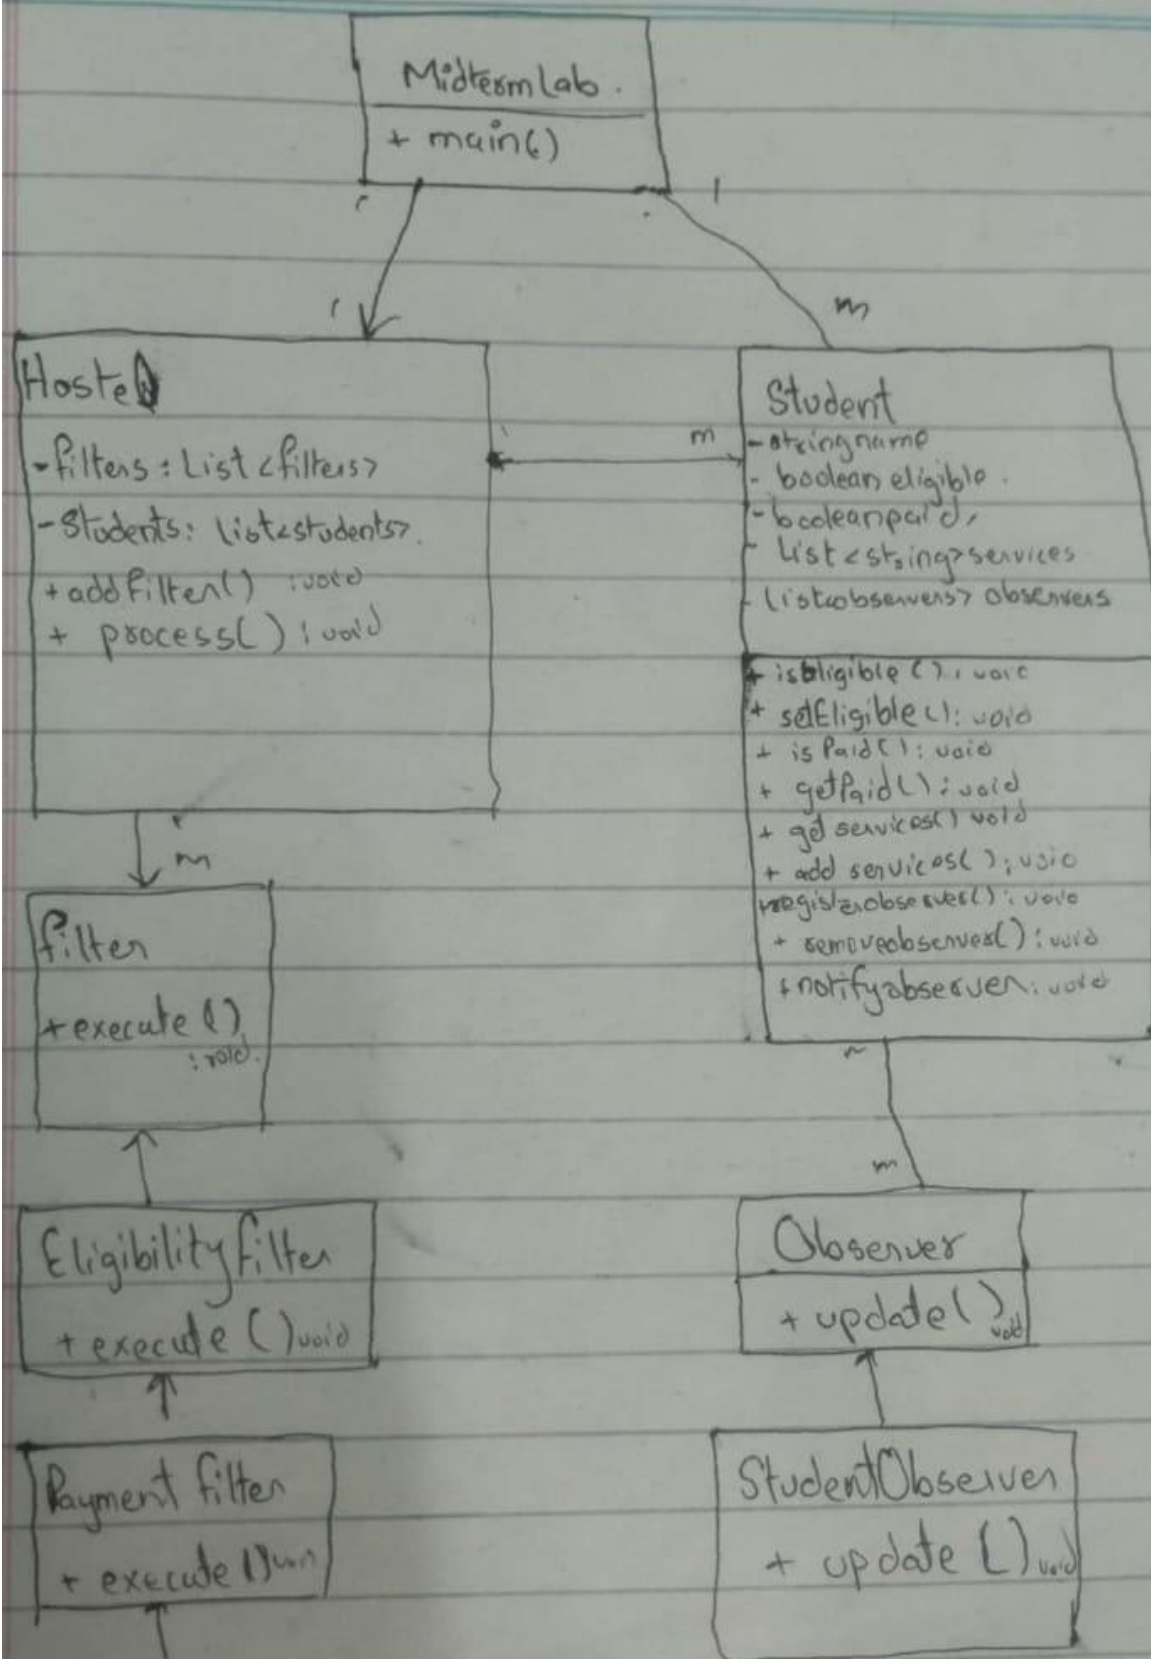 MidtermLab.
+ main()
1
m
1
Hostel
-filters: List<filters>
-Students: List<students>.
+addfilter() : void
+ process() : void
m
Student
-stringname
- boolean eligible.
-booleanpaid,
- List<string>services
- List<observers> observers
+ isEligible(): void
+ setEligible(): void
+ isPaid(): void
+ getPaid(): void
+ get services() void
+ add services(): void
+registerobserver(): void
+ removeobserver(): void
+notifyobserver: void
m
filter
+execute()
: void.
m
Eligibilityfilter
+ execute() void
Observer
+ update() void
Payment filter
+ execute()
StudentObserver
+ update() void